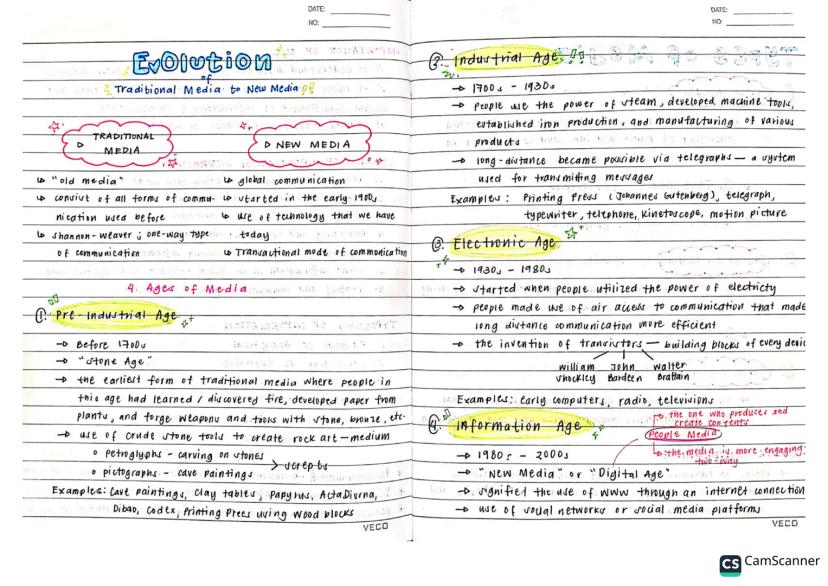 DATE:
NO:
EvOlution
of
Traditional Media to New Media
TRADITIONAL
MEDIA
NEW MEDIA
"old media"
consist of all forms of commu-
nication used before
shannon-weaver ; one-way type
of communication
global communication
started in the early 1900s
use of technology that we have
today
Transactional mode of communication
4 Ages of Media
1. Pre-Industrial Age
→ Before 1700s
→ "Stone Age"
→ the earliest form of traditional media where people in
this age had learned / discovered fire, developed paper from
plants, and forge weapons and tools with stone, bronze, etc.
→ use of crude stone tools to create rock art — medium
o petroglyphs - carving on stones
o pictographs - cave paintings
> scripts
Examples: Cave paintings, Clay tables, Papyrus, Acta Diurna,
Dibao, Codex, Printing Press using wood blocks
VECO
DATE:
NO:
2. Industrial Age
→ 1700s - 1930s
→ people use the power of steam, developed machine tools,
established iron production, and manufacturing of various
products
→ long-distance became possible via telegraphs — a system
used for transmitting messages
Examples: Printing Press (Johannes Gutenberg), telegraph,
typewriter, telephone, kinetoscope, motion picture
3. Electronic Age
→ 1930s - 1980s
→ started when people utilized the power of electricty
→ people made use of air access to communication that made
long distance communication more efficient
→ the invention of transistors — building blocks of every
William Shockley
John Bardeen
Walter Brattain
Examples: early computers, radio, televisions
4. Information Age
the one who produces and
create contents
People Media
the media is more engaging
two-way
→ 1980s - 2000s
→ "New Media" or "Digital Age"
→ signified the use of WWW through an internet connection
→ use of social networks or social media platforms
VECO
CS CamScanner